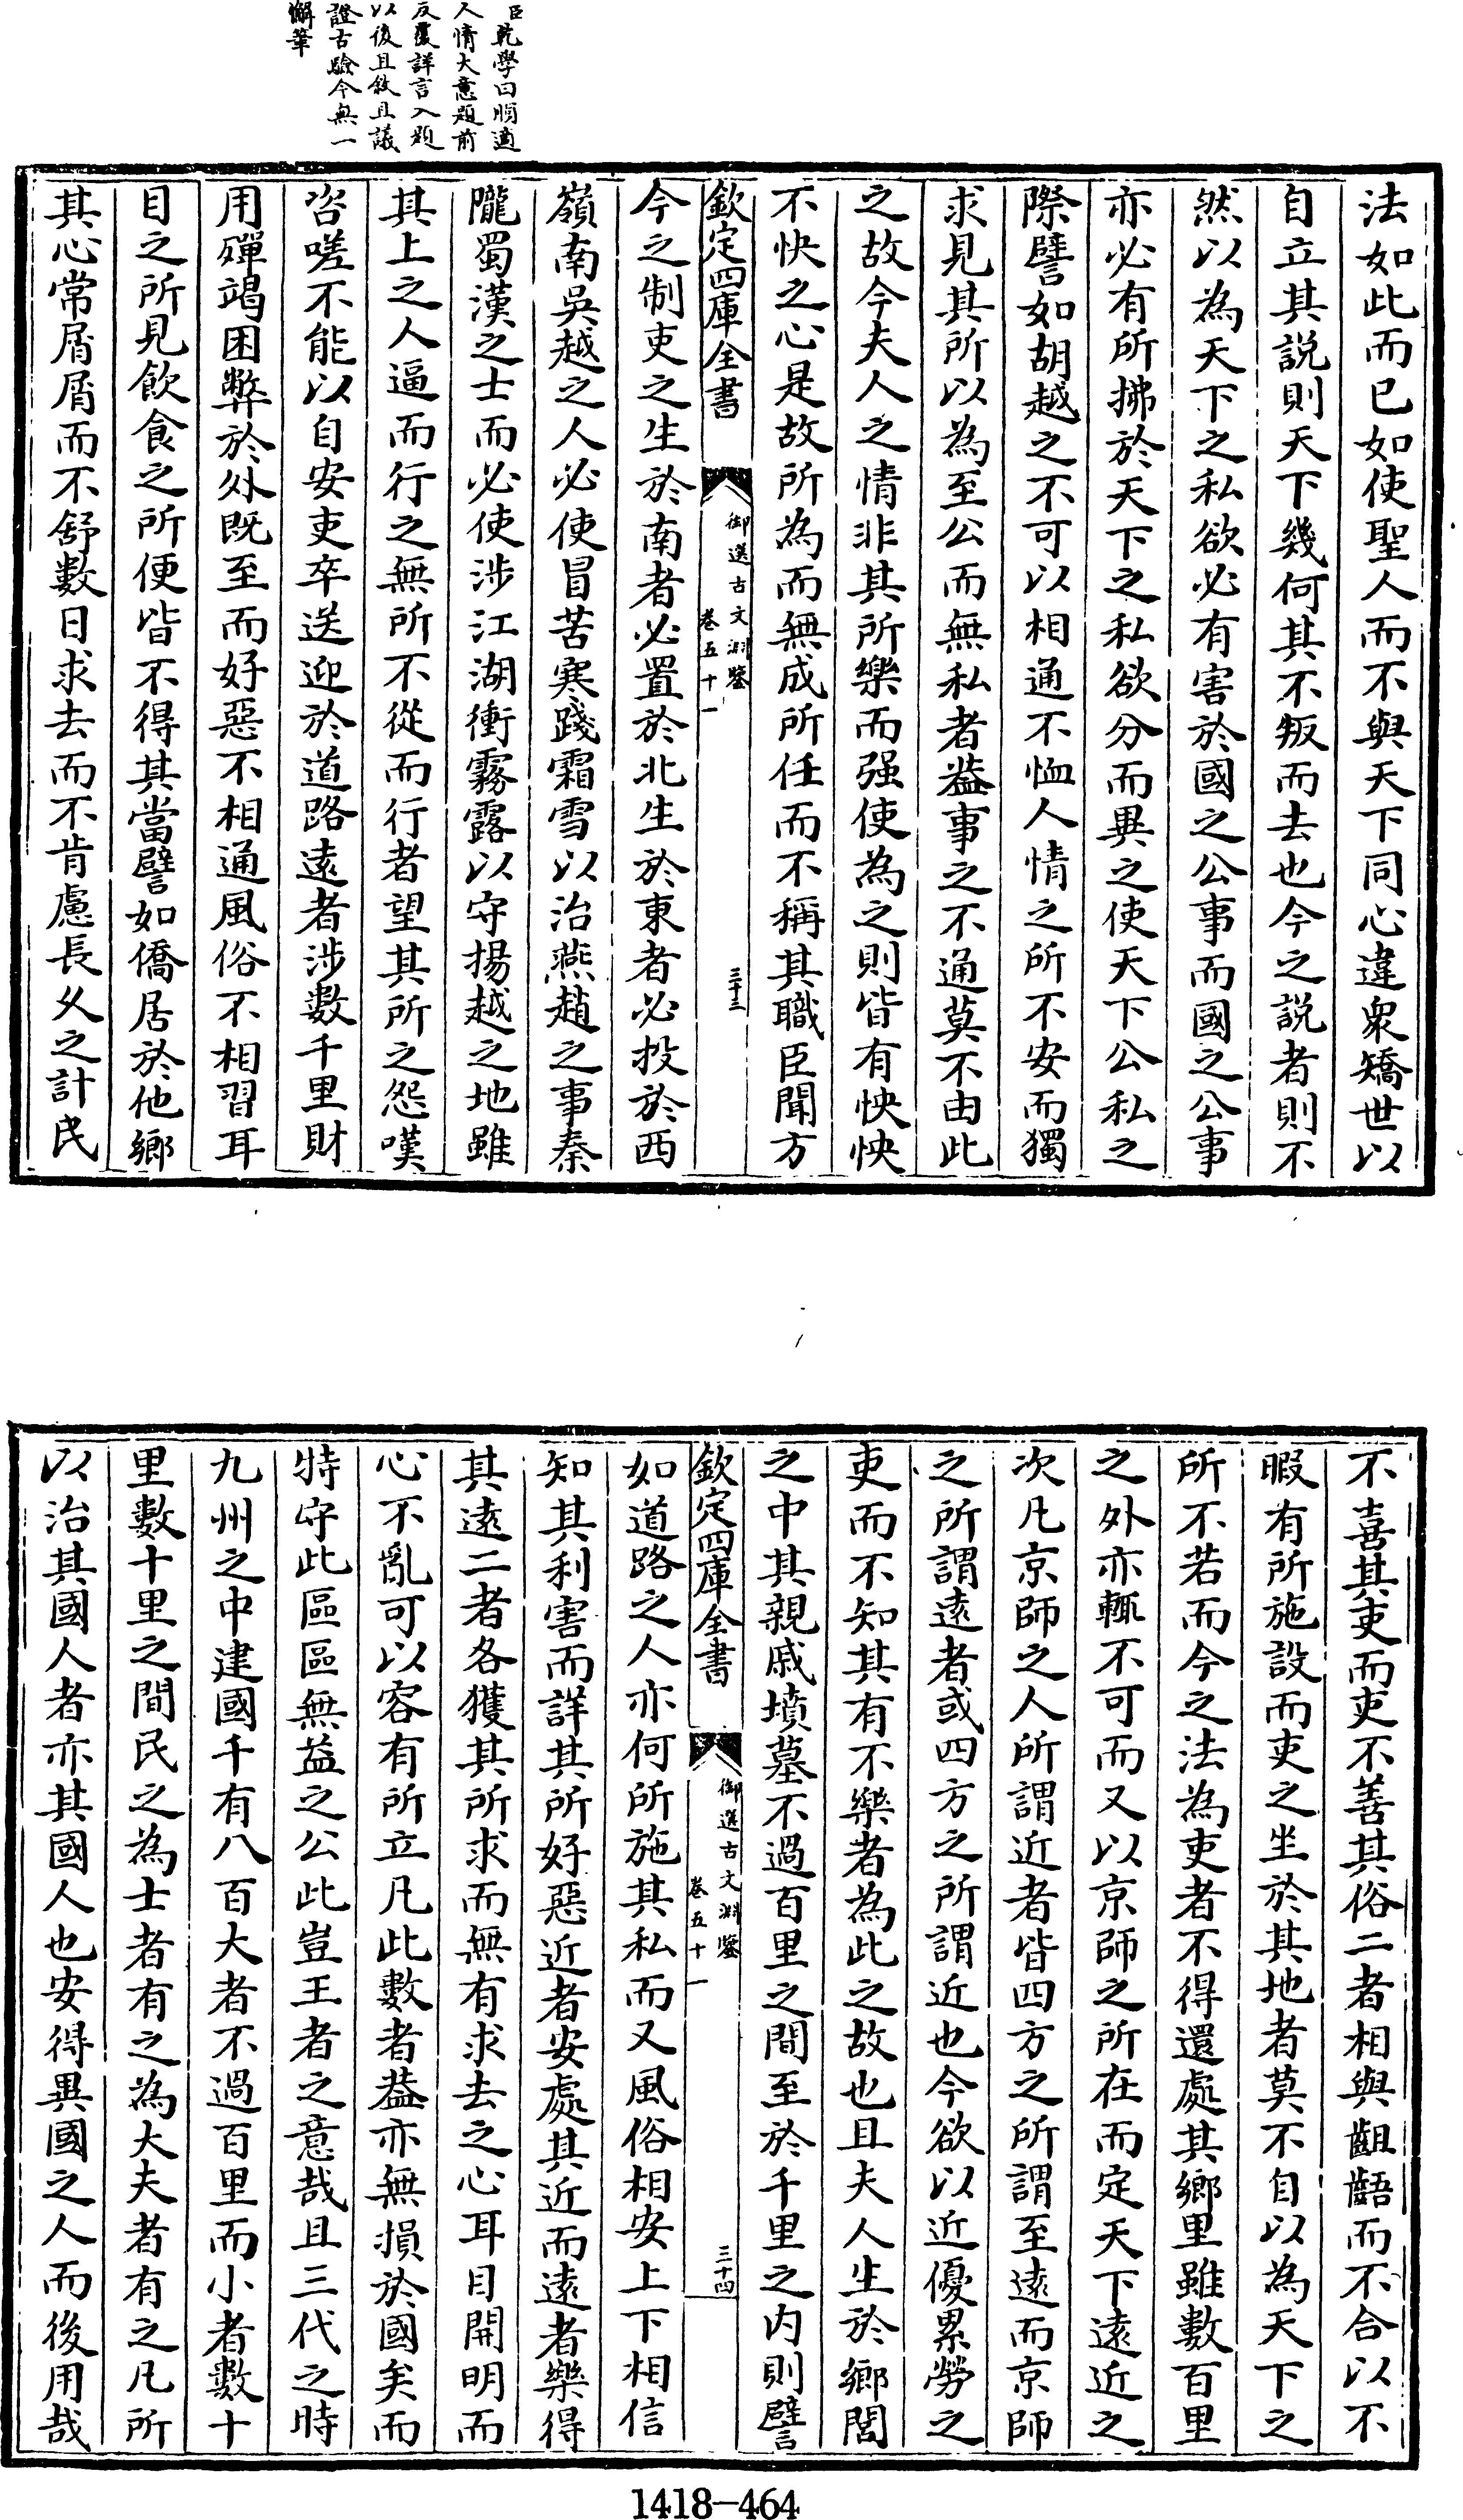 臣乾學曰順適
人情大意題前
反覆詳言入題
以後且敘且議
證古驗今無一
懈筆
法如此而已如使聖人而不與天下同心違衆矯世以
自立其説則天下幾何其不叛而去也今之説者則不
然以為天下之私欲必有害於國之公事而國之公事
亦必有所拂於天下之私欲分而異之使天下公私之
際譬如胡越之不可以相通不恤人情之所不安而獨
求見其所以為至公而無私者葢事之不通莫不由此
之故今夫人之情非其所樂而强使為之則皆有怏怏
不快之心是故所為而無成所任而不稱其職臣聞方
欽定四庫全書
御選古文淵鑒
卷五十一
三十三
今之制吏之生於南者必置於北生於東者必投於西
嶺南吳越之人必使冒苦寒踐霜雪以治燕趙之事秦
隴蜀漢之士而必使涉江湖衝霧露以守揚越之地雖
其上之人逼而行之無所不從而行者望其所之怨嘆
咨嗟不能以自安吏卒送迎於道路遠者涉數千里財
用殫竭困弊於外既至而好惡不相通風俗不相習耳
目之所見飲食之所便皆不得其當譬如僑居於他鄉
其心常屑屑而不舒數日求去而不肯慮長久之計民
不喜其吏而吏不善其俗二者相與齟齬而不合以不
暇有所施設而吏之坐於其地者莫不自以為天下之
所不若而今之法為吏者不得還處其鄉里雖數百里
之外亦輒不可而又以京師之所在而定天下遠近之
次凡京師之人所謂近者皆四方之所謂至遠而京師
之所謂遠者或四方之所謂近也今欲以近優累勞之
吏而不知其有不樂者為此之故也且夫人生於鄉閭
之中其親戚墳墓不過百里之間至於千里之内則譬
欽定四庫全書
御選古文淵鑒
卷五十一
三十四
如道路之人亦何所施其私而又風俗相安上下相信
知其利害而詳其所好惡近者安處其近而遠者樂得
其遠二者各獲其所求而無有求去之心耳目開明而
心不亂可以容有所立凡此數者葢亦無損於國矣而
特守此區區無益之公此豈王者之意哉且三代之時
九州之中建國千有八百大者不過百里而小者數十
里數十里之間民之為士者有之為大夫者有之凡所
以治其國人者亦其國人也安得異國之人而後用哉
1418-464